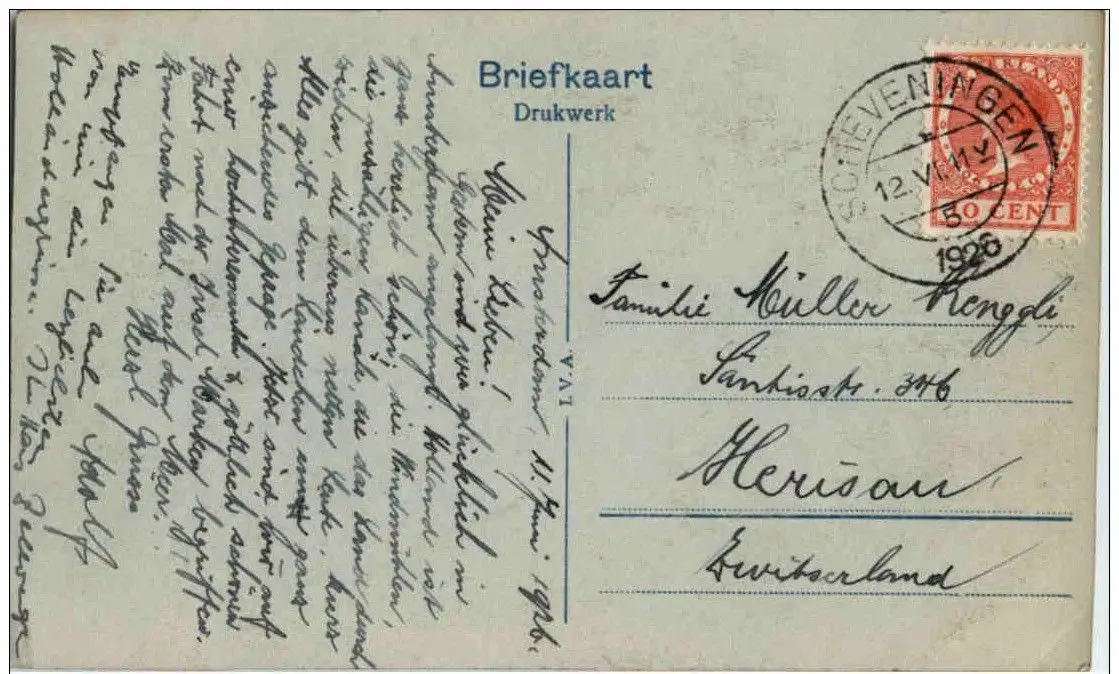 Briefkaart
Drukwerk
SCHEVENINGEN
12.VI.11 V
5
1926
10 CENT
IVAA
Amsterdam, 11. Juni 1926.
Meine Lieben!
Gestern sind wir glücklich in
Amsterdam angelangt. Holland ist
ganz herrlich schön, die Windmühlen,
die unzähligen Kanäle, die das Land durch
ziehen, die überaus netten Leute, kurz
Alles gibt dem Ländchen ein ganz
anziehendes Gepräge. Jetzt sind wir auf
einer hochinteressanten & göttlich schönen
Fahrt nach der Insel Marken begriffen.
Zum ersten Mal auf dem Meer!
Herzl Gruss
Adolf
Empfangen Sie auch
von mir die herzlichsten
Holländergrüsse. Ihr
Familie Müller Renggli,
Säntisstr. 346,
Herisau
Zwitserland